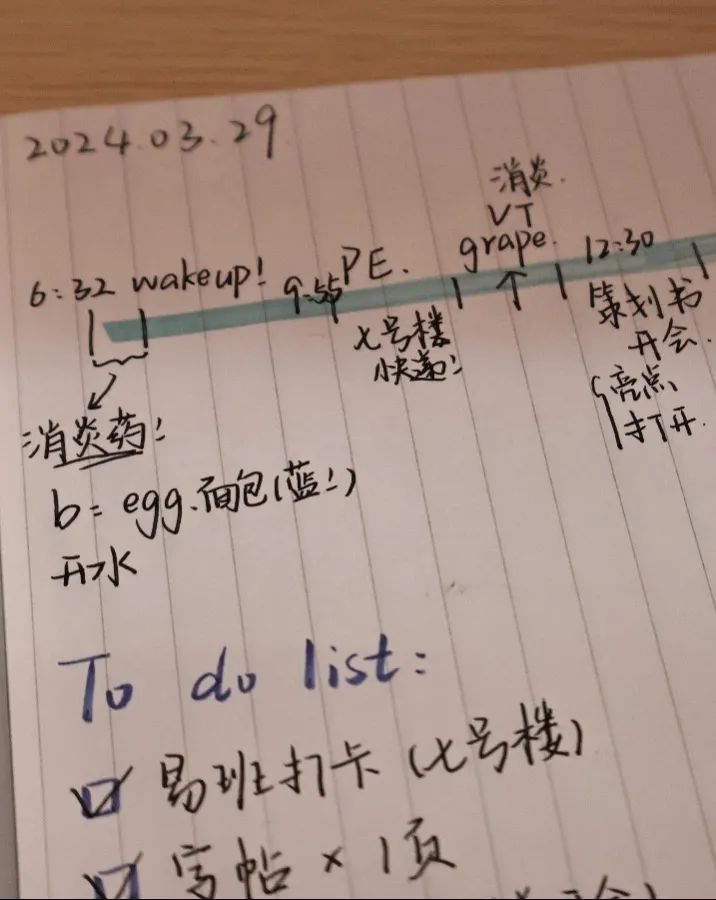 2024.03.29
消炎.
VT
grape.
6:32 wakeup!
9:55
PE.
12:30
七号楼
快递!
策划书
开会.
亮点
打开.
消炎药!
b= egg.面包(蓝!)
开水
To do list:
易班打卡 (七号楼)
字帖 × 1页